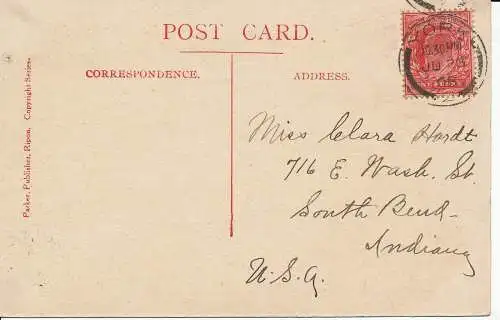 POST CARD.
CORRESPONDENCE.
ADDRESS.
Parker, Publisher, Ripon. Copyright Series.
Miss Clara Hardt
716 E. Wash. St.
South Bend
Indiana
U.S.A.